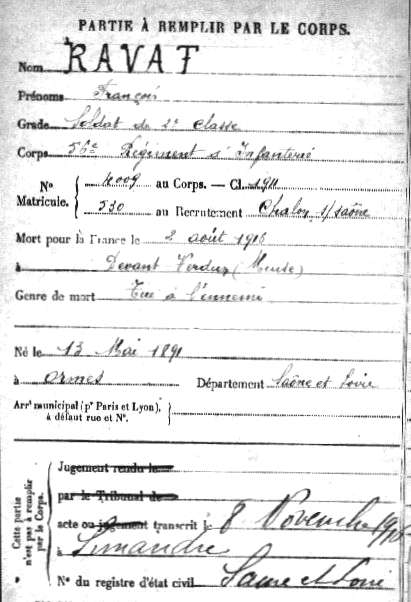 PARTIE À REMPLIR PAR LE CORPS.
Nom RAVAT
Prénoms François
Grade Soldat de 2e classe
Corps 56e Régiment d'Infanterie
N° Matricule. 4009 au Corps. — Cl. 1911
530 au Recrutement Chalon s/saône
Mort pour la France le 2 août 1916
à Devant Verdun (Meuse)
Genre de mort Tué à l'ennemi
Né le 13 Mai 1891
à Ormes Département Saône et Loire
Arrt municipal (pr Paris et Lyon), à défaut rue et N°.
Cette partie n'est pas à remplir par le Corps.
Jugement rendu le
par le Tribunal de
acte ou jugement transcrit le 8 Novembre 1916
à Simandre
N° du registre d'état civil Saone et Loire